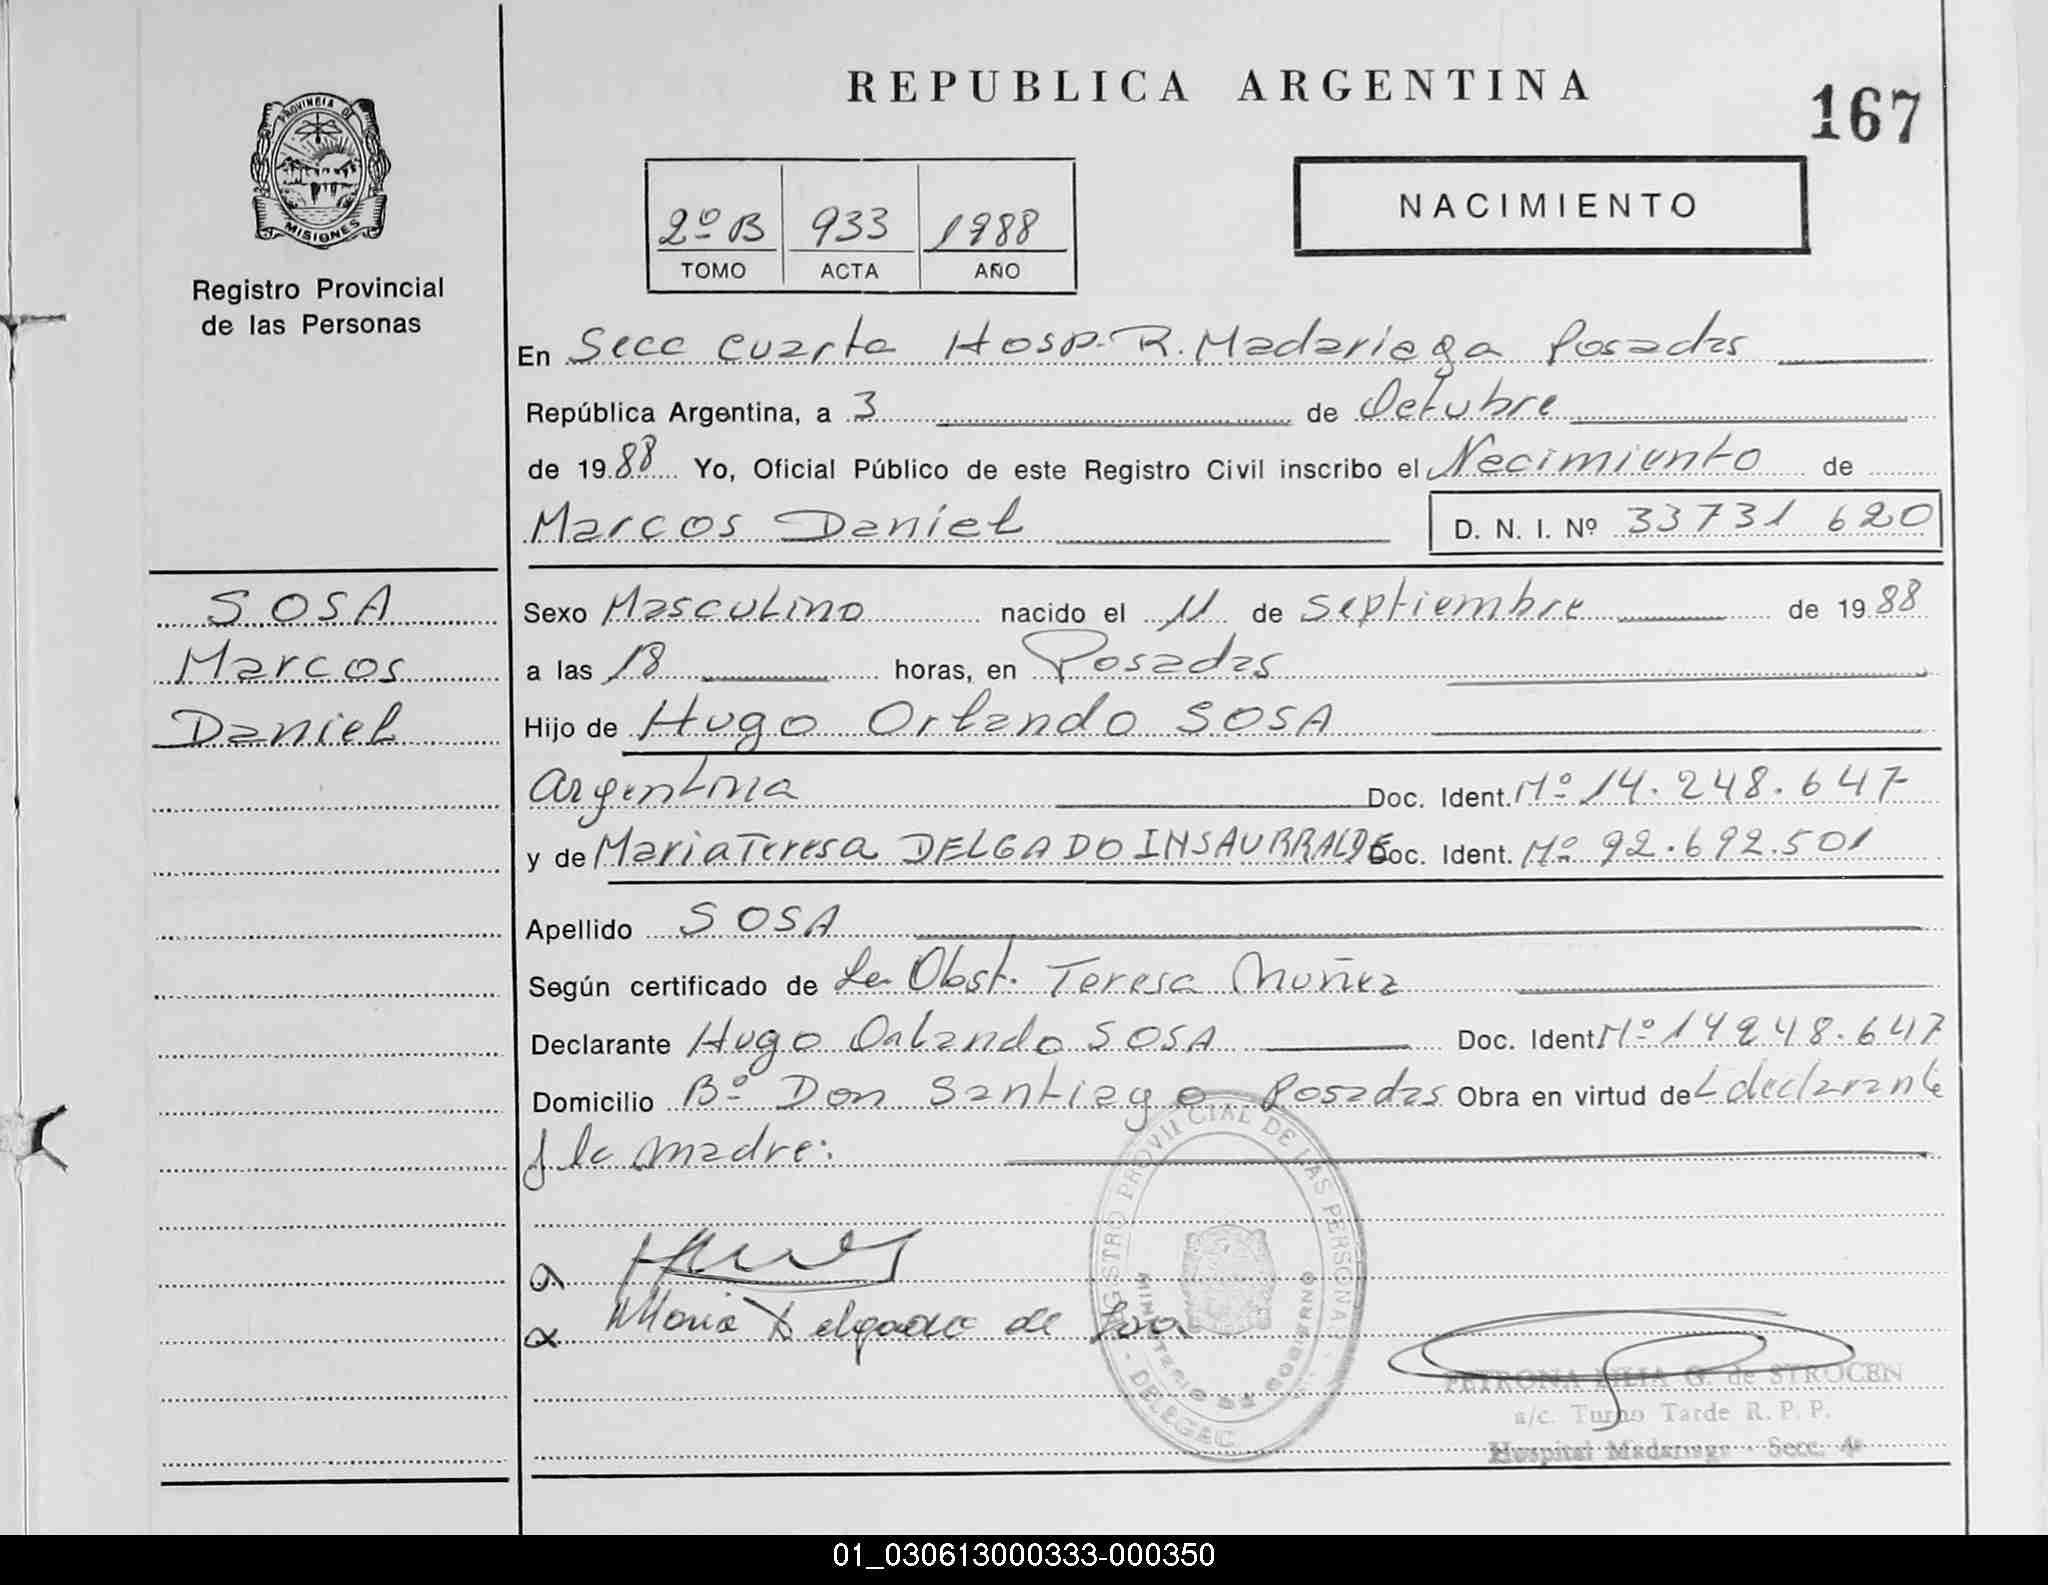 REPUBLICA ARGENTINA
167
PROVINCIA DE
MISIONES
Registro Provincial
de las Personas
2º B 933 1988
TOMO ACTA AÑO
NACIMIENTO
En Secc Cuarta Hosp. R. Madariega Posadas
República Argentina, a 3 de Octubre
de 1988 Yo, Oficial Público de este Registro Civil inscribo el Nacimiento de
Marcos Daniel D. N. I. Nº 33731 620
SOSA
Marcos
Daniel
Sexo Masculino nacido el 11 de Septiembre de 1988
a las 18 horas, en Posadas
Hijo de Hugo Orlando SOSA
Argentina Doc. Ident. Mº 14.248.647
y de Maria Teresa DELGADO INSAURRALDE Doc. Ident. Mº 92.692.501
Apellido SOSA
Según certificado de La Obst. Teresa Muñez
Declarante Hugo Orlando SOSA Doc. Ident. Mº 14248.647
Domicilio Bº Don Santiago Posadas Obra en virtud del declarante
y la madre:
Maria Delgado de Sosa
REGISTRO PROVINCIAL DE LAS PERSONAS
MINISTERIO DE GOBIERNO
- DELEGAC.
PETRONA LILIA G. de STROCEN
a/c. Turno Tarde R. P. P.
Hospital Madariaga - Secc. 4ª
01_030613000333-000350